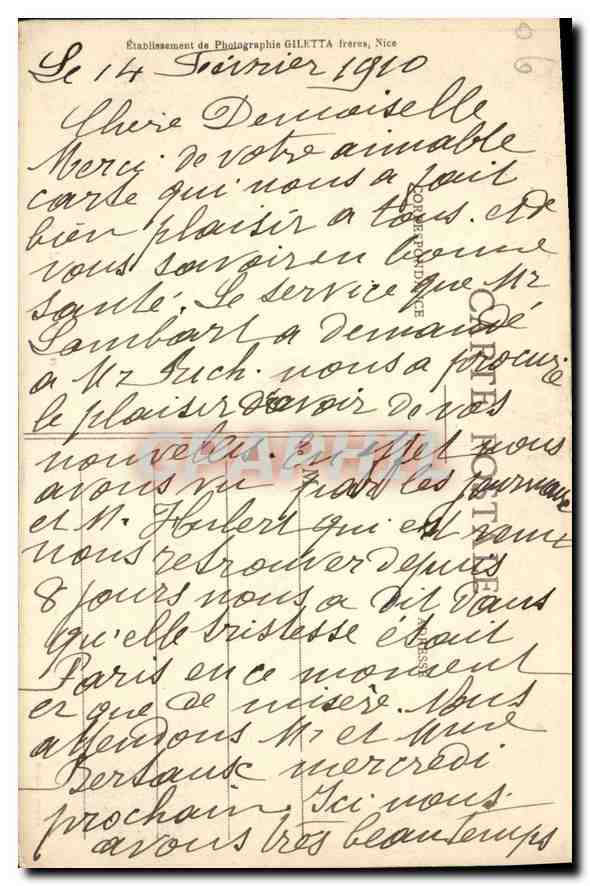 Établissement de Photographie GILETTA frères, Nice
Le 14 Février 1910
Chère Demoiselle
Merci de votre aimable
carte qui nous a fait
bien plaisir a tous. et de
vous savoir en bonne
santé. Le service que Mr
Lombart a demandé
a Mr nous a procuré
le plaisir d'avoir de vos
nouvelles. En effet nous
avons vu par les journaux
et M. Hubert qui est venu
nous retrouver depuis
8 jours nous a dit dans
qu'elle tristesse était
Paris en ce moment
et que de misère. Nous
attendons Mr et Mme
mercredi
prochain. Ici nous
avons très beau temps
CARTE POSTALE
CORRESPONDANCE
ADRESSE
CPAPHIL